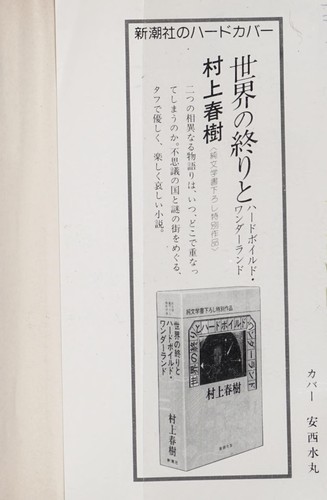 新潮社のハードカバー
世界の終りと
ハードボイルド・
ワンダーランド
村上春樹
〈純文学書下ろし特別作品〉
二つの相異なる物語りは、いつ、どこで重なっ
てしまうのか。不思議の国と謎の街をめぐる、
タフで優しく、楽しく哀しい小説。
純文学書下ろし特別作品
世界の終りと
ハードボイルド・
ワンダーランド
村上春樹
新潮社
世界の終りと
ハードボイルド・
ワンダーランド
村上春樹
カバー 安西水丸